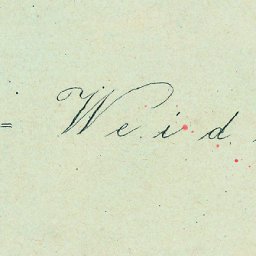 = Weid